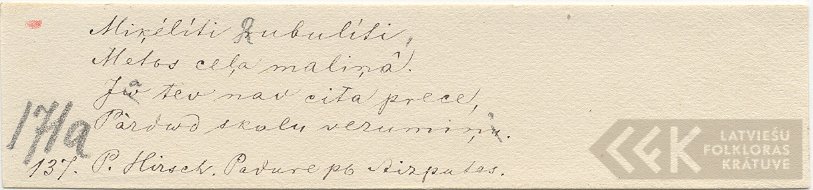 Miķélíti Rubulíti,
Metos ceļa maliņâ.
Ja tev nav cita prece,
Pârdod skalu vezumiņu.
171a
137. P. Hirsch. Padure pb Aizputes.
LATVIEŠU
FOLKLORAS
KRĀTUVE
LFK